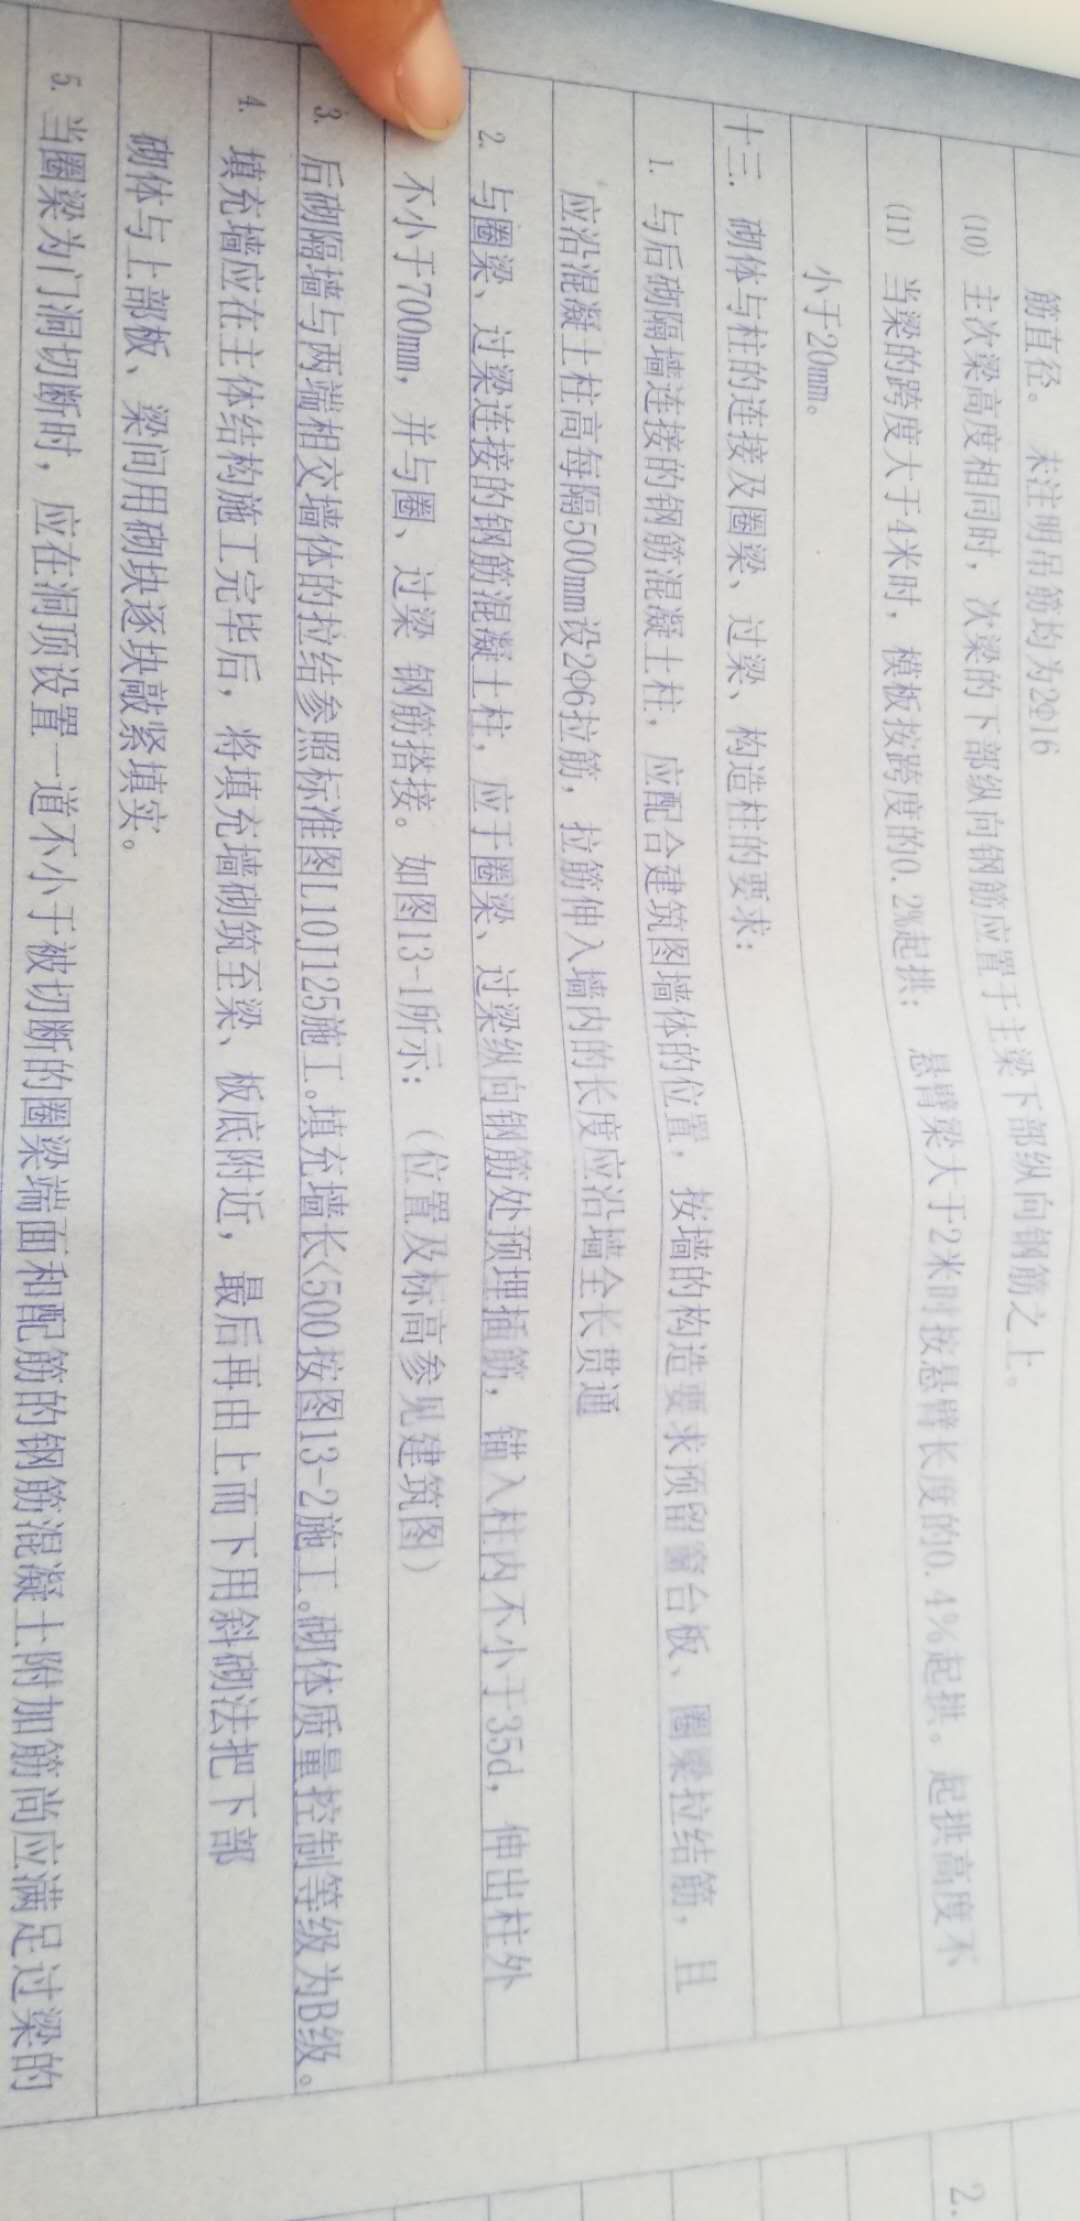 筋直径。 未注明吊筋均为2Φ16
(10) 主次梁高度相同时，次梁的下部纵向钢筋应置于主梁下部纵向钢筋之上。
(11) 当梁的跨度大于4米时，模板按跨度的0.2%起拱； 悬臂梁大于2米时按悬臂长度的0.4%起拱。起拱高度不
小于20mm。
十三. 砌体与柱的连接及圈梁、过梁、构造柱的要求：
1. 与后砌隔墙连接的钢筋混凝土柱，应配合建筑图墙体的位置，按墙的构造要求预留窗台板、圈梁拉结筋，且
应沿混凝土柱高每隔500mm设2Φ6拉筋，拉筋伸入墙内的长度应沿墙全长贯通
2. 与圈梁、过梁连接的钢筋混凝土柱，应于圈梁、过梁纵向钢筋处预埋插筋，锚入柱内不小于35d，伸出柱外
不小于700mm，并与圈、过梁 钢筋搭接。如图13-1所示：（位置及标高参见建筑图）
3. 后砌隔墙与两端相交墙体的拉结参照标准图L10J125施工。填充墙长<500按图13-2施工。砌体质量控制等级为B级。
4. 填充墙应在主体结构施工完毕后，将填充墙砌筑至梁、板底附近，最后再由上而下用斜砌法把下部
砌体与上部板、梁间用砌块逐块敲紧填实。
5. 当圈梁为门洞切断时，应在洞顶设置一道不小于被切断的圈梁端面和配筋的钢筋混凝土附加筋尚应满足过梁的
2.